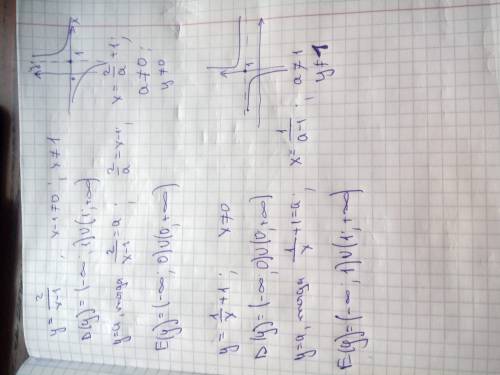 y = 2/(x-1) ; x-1≠0 ; x≠1
D(y) = (-∞; 1)∪(1; +∞)
y=a, тогда 2/(x-1) = a ; 2/a = x-1 ; x = 2/a + 1 ;
a≠0 ;
y≠0
E(y) = (-∞; 0)∪(0; +∞)
x
1
y = 1/x + 1 ; x≠0
D(y) = (-∞; 0)∪(0; +∞)
y=a, тогда 1/x + 1 = a ; x = 1/(a-1) ; a≠1
y≠1
E(y) = (-∞, 1)∪(1; +∞)
1